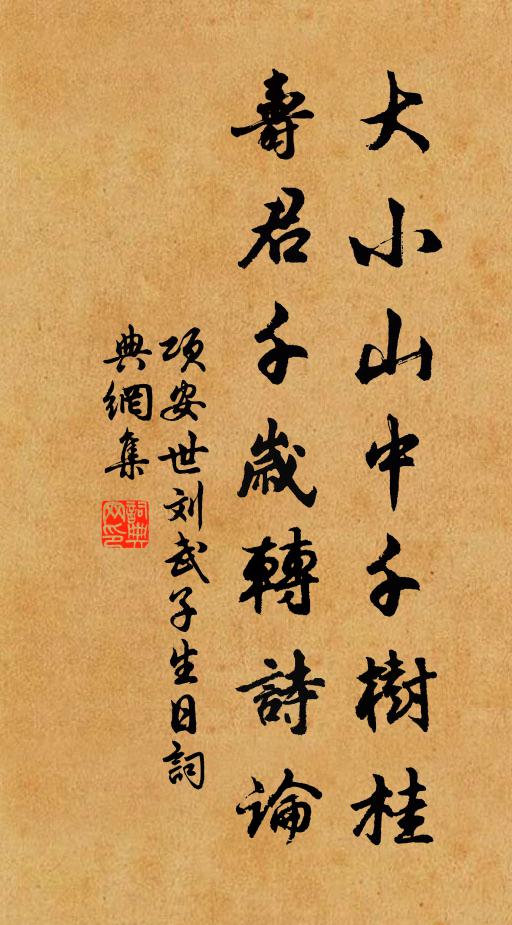 大小山中千樹桂
壽君千歲轉詩論
项安世刘武子生日詞
典網集
詞典网印